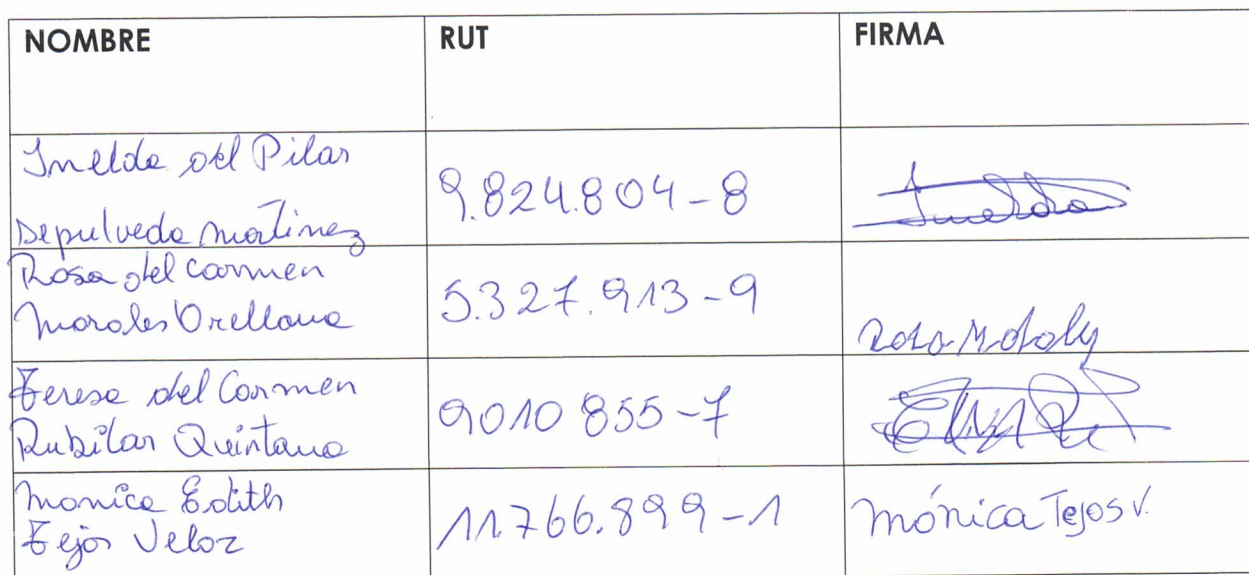 NOMBRE RUT FIRMA
Imelda del Pilar
Sepulveda Martinez 9.824.804-8 Imelda
Rosa del Carmen
Morales Orellana 5.327.913-9 Rosa
Teresa del Carmen
Rubilar Quintana 9010855-7
Monica Edith
Tejos Veloz 11.766.899-1 Mónica Tejos V.